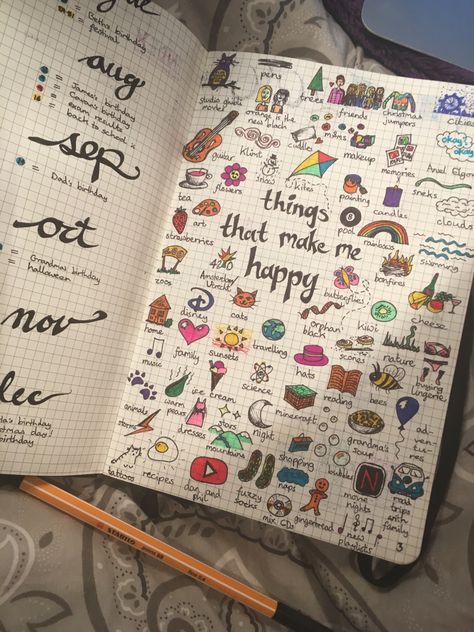 aug
= Beth's birthday
festival
= James's birthday
= Emma's birthday
= exam results
= back to school
sep
= Dad's birthday
oct
= Grandma's birthday
halloween
nov
birthday
day!
birthday
things
that make me
happy
studio ghibli
movies
pens
orange is the
new black
trees
friends
christmas
jumpers
cities
guitar
klimt
candles
makeup
memories
snow
kites
okay?
okay.
snakes
clouds
flowers
tea
painting
candles
pool
rainbows
swimming
strawberries
art
zoos
Amsterdam
420
butterflies
bonfires
cheese
disney
cats
orphan
black
kiwi
home
family
sunsets
travelling
scones
nature
buying
lingerie
music
ice cream
science
hats
reading
bees
animals
warm
dresses
stars
night
minecraft
grandma's
soup
adventures
storms
mountains
shopping
tattoos
recipes
dan and
phil
fuzzy
socks
naps
bubbles
movie
nights
N
road
trips
with
family
mix CDs
gingerbread
new
playlists
3
STABILO